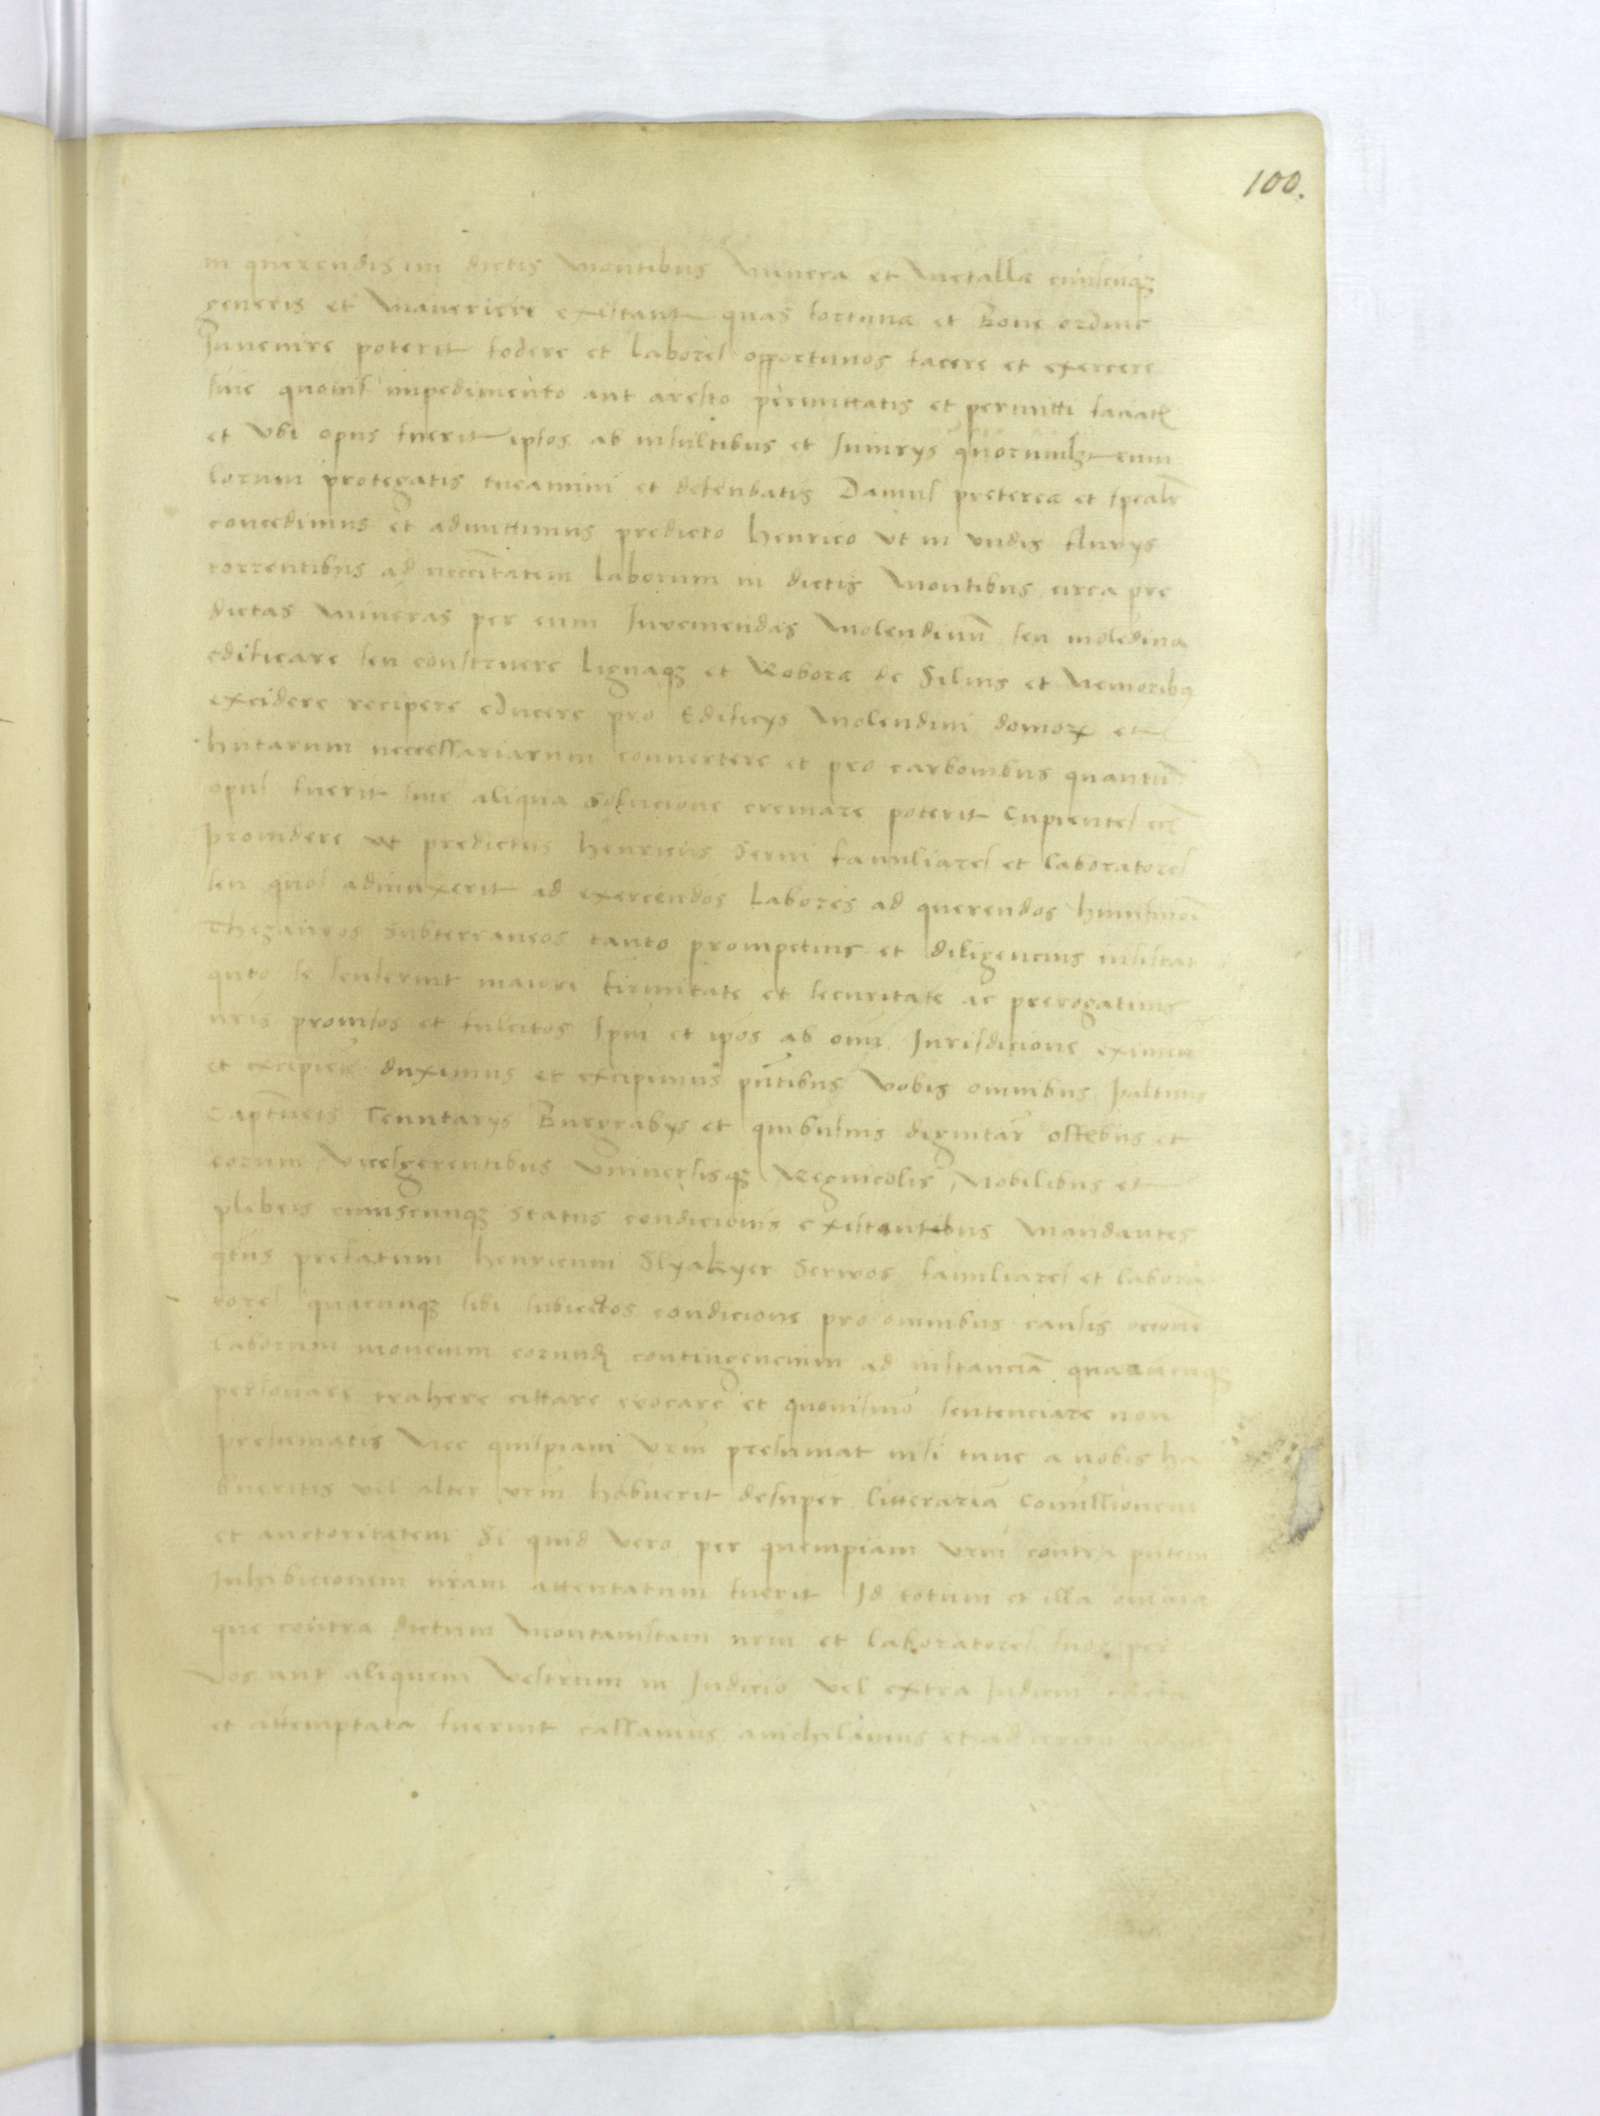 100.
in querendis in dictis Montibus Minera et Metalla cuiuscuq3
generis et Maneriere existant quas fortuna et Bono ordine
Invenire poterit fodere et labores opportunos facere et exercere
sine quovis impedimento aut aresto permittatis et permitti faciatis
et Vbi opus fuerit ipsos ab insultibus et Iniurys quorumlibet emu
lorum protegatis tueamini et defendatis Damus preterea et spealr
concedimus et admittimus predicto Henrico vt in vndis fluvys
torrentibus ad neccitatem laborum in dictis Montibus circa pre
dictas Mineras per eum Invemendas Molendinu seu moledina
edificare seu construere lignaq3 et Robora de Silvis et Nemoriba
excidere recipere educere pro Edificys Molendini domorx et
hutarum neccessariarum convertere et pro carbonibus quantu
opus fuerit sine aliqua solucione cremare poterit Cupientes eciam
providere vt predictus Henricus servi familiares et laboratores
seu quos adiunxerit ad exercendos labores ad querendos huiusmoi
Thezauros subterraneos tanto prompctius et diligencius insistat
quto se senserint maiori firmitate et securitate ac prerogativis
nris provisos et fulcitos Ipm et ipos ab omi Jurisdicione eximen
et excipien duximus et excipimus pntibus Vobis omnibus palatinis
Captueis Tenutarys Burgrabys et quibusvis dignitar offibus et
eorum Vicesgerentibus Vniversisq3 Regnicolis Nobilibus et
plibeis cuiuscunq3 status condicionis existantibus Mandantes
qtus prefatum Henricum Slyakyer Servos familiares et labora
tores quacunq3 sibi subiectos condicione pro omnibus causis
laborum moncium eorundem contingencium ad instanciam quarucunq3
personaru trahere cittare evocare et quovismo sentenciare non
presumatis Nec quispiam vrm presumat nisi tunc a nobis ha
bueritis vel alter vrm habuerit desuper litterariam comissionem
et auctoritatem Si quid vero per quempiam vrm contra pntem
Inhibicionem nram attentatum fuerit Id totum et illa omnia
que contra dictum Montanistam nrm et laboratores suos per
vos aut aliquem vestrum in Judicio vel extra Judicium
et attemptata fuerint cassamus anichilamus et